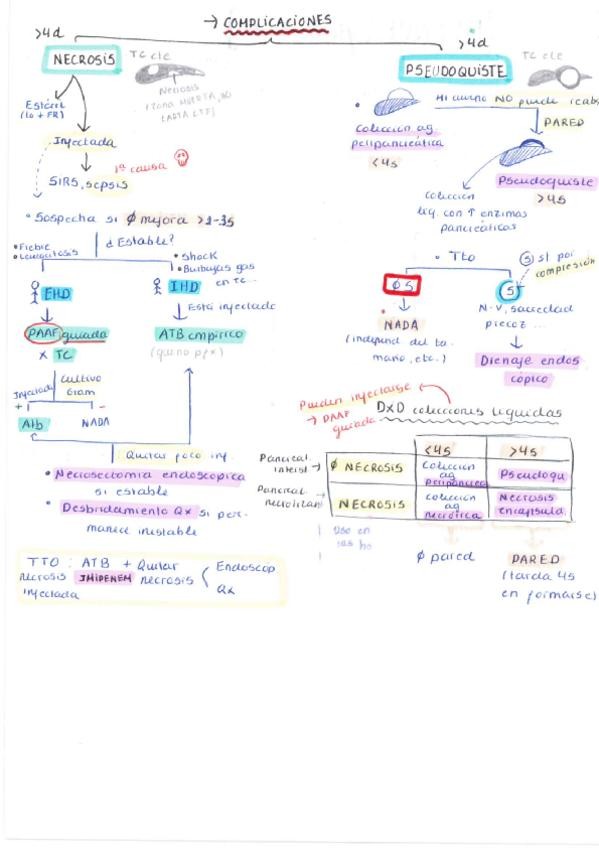 → COMPLICACIONES
>4d
NECROSIS
TC c/c
Necrosis
(zona muerta, no
capta CTE)
Estéril
(lo + FR)
Infectada
1ª causa
SIRS, sepsis
• Sospecha si ∅ mejora >1-3s
¿Estable?
• Fiebre
• Leucocitosis
• Shock
• Burbujas gas
en TC...
EHD
IHD
Está infectado
PAAF guiada
x TC
ATB empírico
(que no ppx)
Infectada
Cultivo
Gram
+
-
Atb
NADA
Quitar foco inf
• Necrosectomía endoscópica
si estable
• Desbridamiento Qx si per-
manece inestable
TTO: ATB + Quitar
necrosis IMIPENEM necrosis
infectada
Endoscop
Qx
>4d
PSEUDOQUISTE
TC c/c
Mi cuerpo NO puede reabs
PARED
• Colección ag
peripancreática
<4s
Pseudoquiste
>4s
Colección
líq con ↑ enzimas
pancreáticas
• Tto
∅ S
S
S sf por
compresión
NADA
(independ del ta-
maño, etc.)
N-V, saciedad
precoz...
Drenaje endos
cópico
Pueden infectarse
→ PAAF
guiada
DxD colecciones líquidas
<4s
>4s
Pancreat.
interst →
∅ NECROSIS
Colección
ag
peripancrea
Pseudoqu
Pancreat
necrotizan →
NECROSIS
colección
ag
necrótica
Necrosis
encapsula
∅ pared
PARED
(tarda 4s
en formarse)